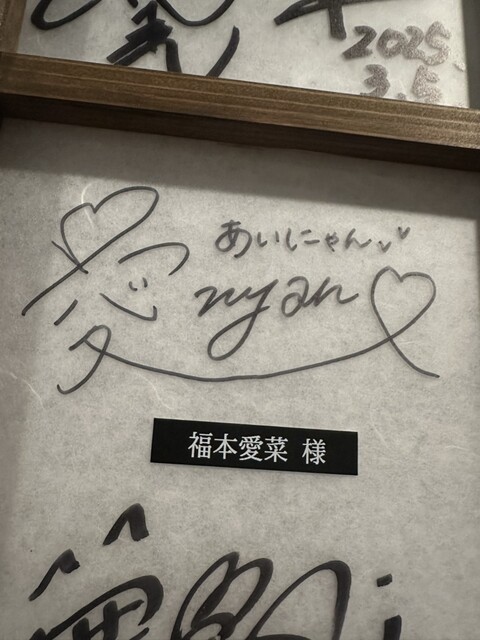 2025.
3.5
あいにゃん
愛nyan
福本愛菜 様